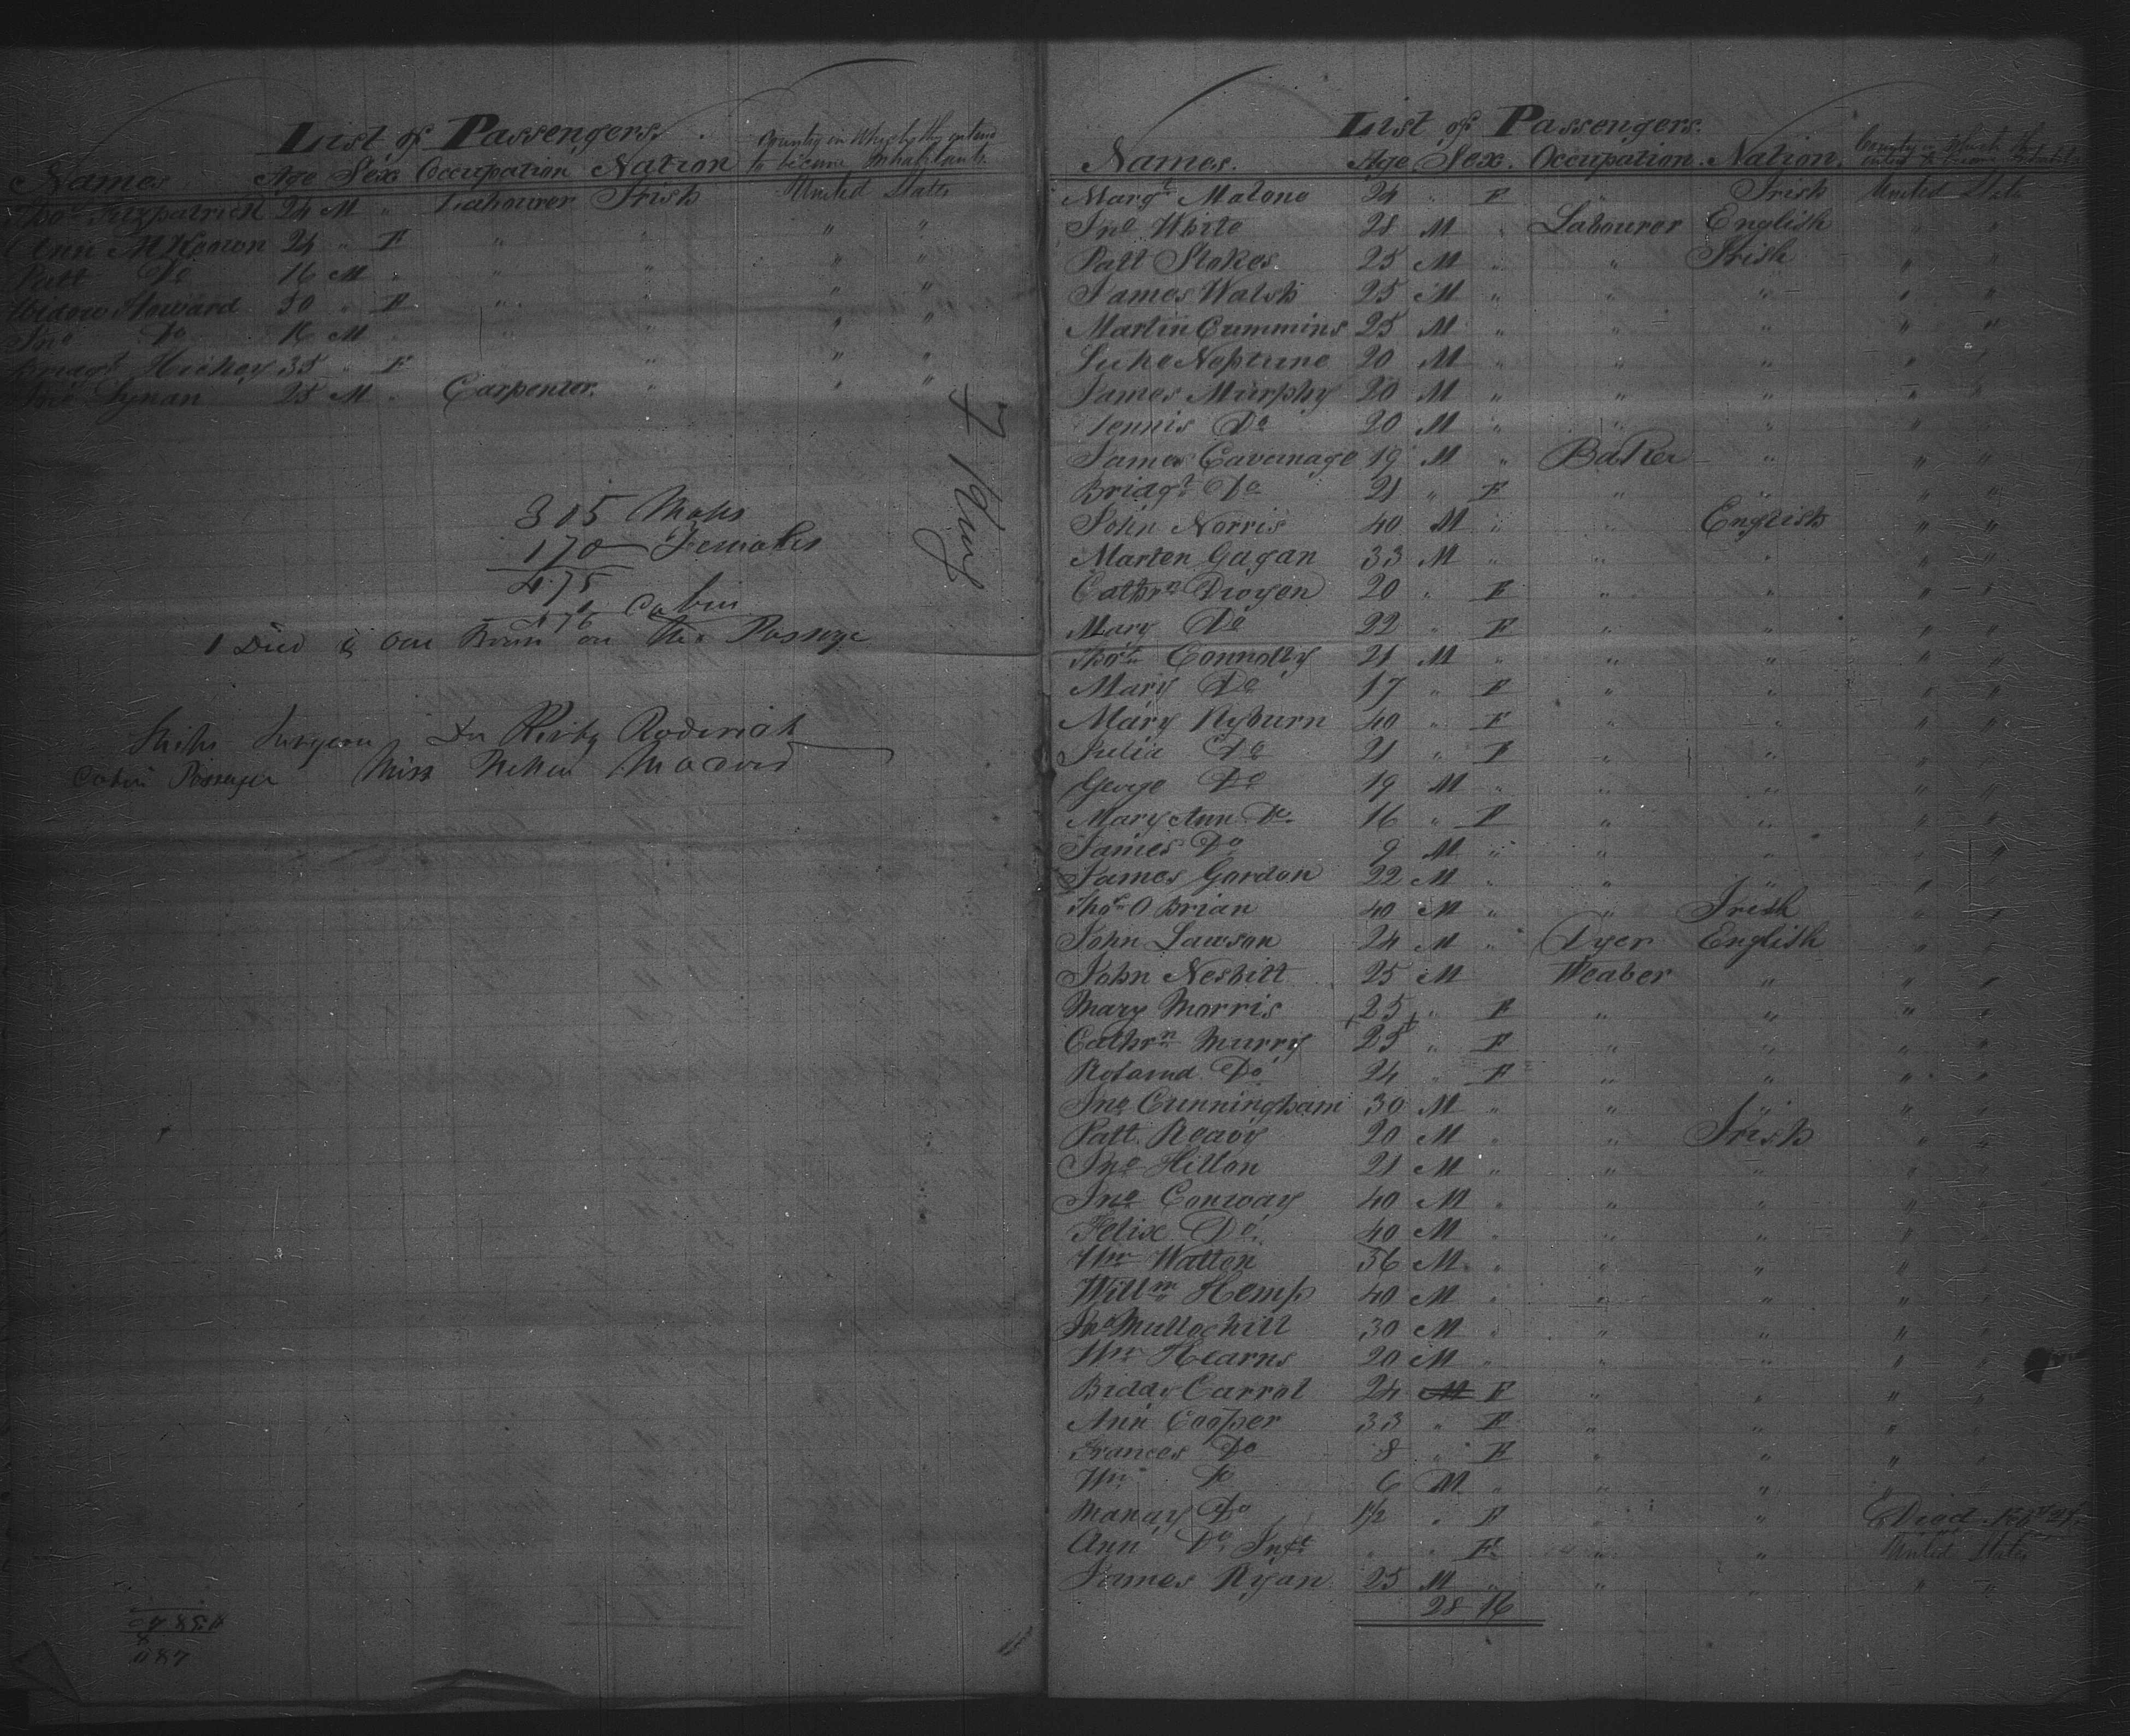 List of Passengers.
Names. Age Sex Occupation Nation Country in Which they intend to become Inhabitants
Thos Fitzpatrick 24 M " Labourer Irish United States
Ann McKeown 24 " F " " " "
Patt Do 16 M " " " " "
Widow Howard 30 " F " " " "
Jno Do 16 M " " " " "
Bridgt Hickey 35 " F " " " "
Jno Lynan 25 M " Carpenter. " " "
305 Males
170 Females
475
1 Cabin
476
1 Died & One Born on the Passage
Ships Surgeon Dr Kirby Roderick
Cabin Passenger Miss
7 Aug
List of Passengers.
Names. Age Sex. Occupation. Nation. Country in Which they intend to become Inhabitts
Margt Malone 24 " F " Irish United States
Jno White 28 M " Labourer English " "
Patt Stokes. 25 M " " Irish " "
James Walsh 25 M " " " " "
Martin Cummins 25 M " " " " "
Luke Neptune 20 M " " " " "
James Murphy 20 M " " " " "
Dennis Do 20 M " " " " "
James Cavernage 19 M " Baker " " "
Bridgt Do 21 " F " " " "
John Norris 40 M " " English " "
Marten Gagan 33 M " " " " "
Cathrn Droyen 20 " F " " " "
Mary Do 22 " F " " " "
Thos Connolly 21 M " " " " "
Mary Do 17 " F " " " "
Mary Ryburn 40 " F " " " "
Julia Do 21 " F " " " "
George Do 19 M " " " " "
Mary Ann Do 16 " F " " " "
James Do 9 M " " " " "
James Gordon 22 M " " " " "
Thos O Brian 40 M " " Irish " "
John Lawson 24 M " Dyer English " "
John Nesbitt 25 M Weaber " " "
Mary Morris 25 " F " " " "
Cathrn Murry 25 " F " " " "
Rosanna Do 24 " F " " " "
Jno Cunningham 30 M " " " " "
Patt Reavy 20 M " " Irish " "
Jno Hillon 21 M " " " " "
Jno Conway 40 M " " " " "
Felix Do. 40 M " " " " "
Wm Walton 56 M " " " " "
Willm Hemp 40 M " " " " "
Jno Mullochill 30 M " " " " "
Wm Hearns 20 M " " " " "
Biddy Carrol 24 M F " " " "
Ann Cooper 33 " F " " " "
Frances Do 8 " F " " " "
Wm Do 6 M " " " " "
Do 1½ " F " " Died
Ann Do Inft " " F " " United States
James Ryan 25 M " " " " "
28 16